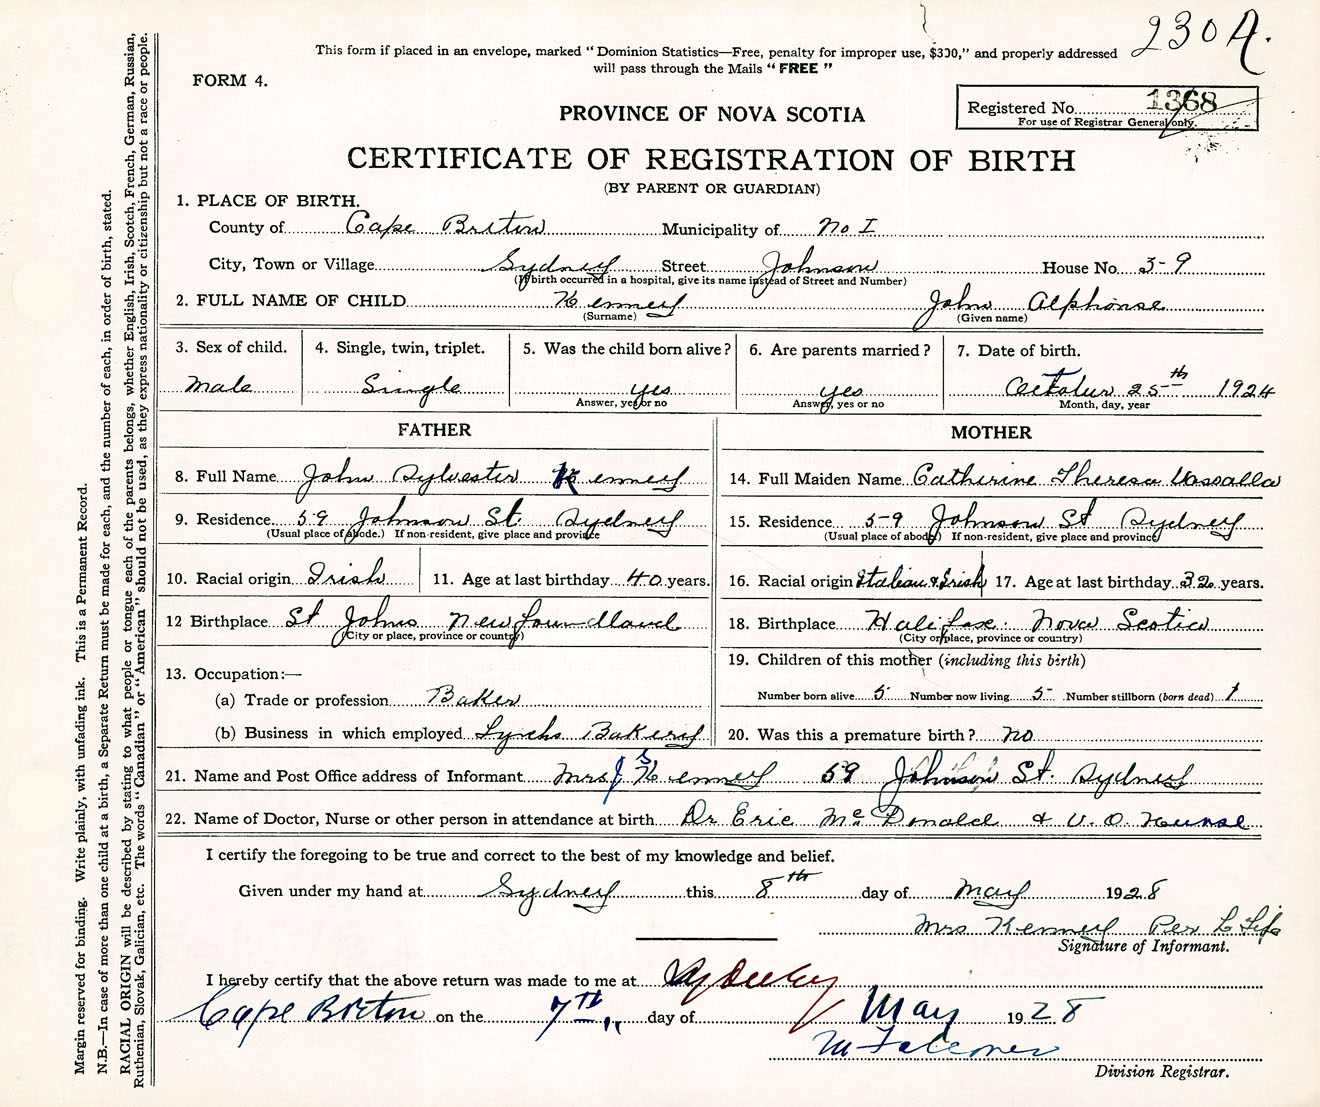 230 A.
This form if placed in an envelope, marked "Dominion Statistics—Free, penalty for improper use, $300," and properly addressed
will pass through the Mails "FREE"
FORM 4.
Registered No. 1368
For use of Registrar General only.
PROVINCE OF NOVA SCOTIA
CERTIFICATE OF REGISTRATION OF BIRTH
(BY PARENT OR GUARDIAN)
1. PLACE OF BIRTH.
County of Cape Breton Municipality of No I
City, Town or Village Sydney Street Johnson House No. 59
(If birth occurred in a hospital, give its name instead of Street and Number)
2. FULL NAME OF CHILD Kenney John Alphonse
(Surname) (Given name)
3. Sex of child. 4. Single, twin, triplet. 5. Was the child born alive? 6. Are parents married? 7. Date of birth.
Male Single yes yes October 25th 1924
Answer, yes or no Answer, yes or no Month, day, year
FATHER MOTHER
8. Full Name John Sylvester Kenney 14. Full Maiden Name Catherine Theresa Vassallo
9. Residence 59 Johnson St. Sydney 15. Residence 59 Johnson St Sydney
(Usual place of abode.) If non-resident, give place and province (Usual place of abode) If non-resident, give place and province
10. Racial origin Irish 11. Age at last birthday 40 years. 16. Racial origin Italian & Irish 17. Age at last birthday 32 years.
12 Birthplace St Johns Newfoundland 18. Birthplace Halifax Nova Scotia
(City or place, province or country) (City or place, province or country)
13. Occupation:— 19. Children of this mother (including this birth)
(a) Trade or profession Baker Number born alive 5 Number now living 5 Number stillborn (born dead) 1
(b) Business in which employed Lynchs Bakery 20. Was this a premature birth? No
21. Name and Post Office address of Informant Mrs J S Kenney 59 Johnson St. Sydney
22. Name of Doctor, Nurse or other person in attendance at birth Dr Eric McDonald & V. O. Nurse
I certify the foregoing to be true and correct to the best of my knowledge and belief.
Given under my hand at Sydney this 8th day of May 1928
Mrs Kenney Per
Signature of Informant.
I hereby certify that the above return was made to me at Sydney
Cape Breton on the 7th day of May 1928
Division Registrar.
Margin reserved for binding. Write plainly, with unfading ink. This is a Permanent Record.
N.B.—In case of more than one child at a birth, a Separate Return must be made for each, and the number of each, in order of birth, stated.
RACIAL ORIGIN will be described by stating to what people or tongue each of the parents belongs, whether English, Irish, Scotch, French, German, Russian,
Ruthenian, Slovak, Galician, etc. The words "Canadian" or "American" should not be used, as they express nationality or citizenship but not a race or people.